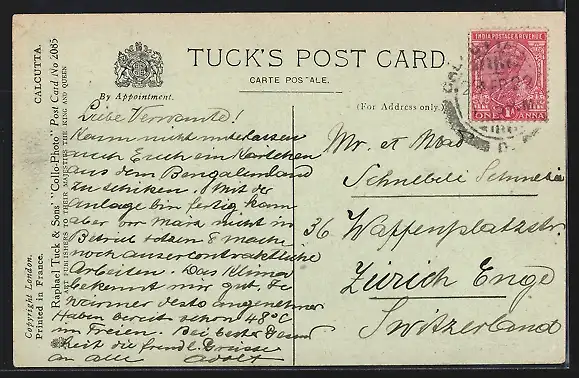 TUCK'S POST CARD
CARTE POSTALE.
By Appointment.
(For Address only.)
CALCUTTA.
Raphael Tuck & Sons' "Collo-Photo" Post Card No 2085
ART PUBLISHERS TO THEIR MAJESTIES THE KING AND QUEEN
Copyright London.
Printed in France.
INDIA POSTAGE & REVENUE
ONE 1A ANNA
Liebe Verwandte!
Kann nicht unterlassen
auch Euch ein Kärtchen
aus dem Bengalenland
zu schiken. Mit der
Anlage bin fertig, kam
aber vor März nicht in
Betrieb 8
noch ausserkontraktliche
Arbeiten. Das Klima
bekommt mir gut. Je
wärmer desto angenehmer
Haben bereit schon 48°C
im Freien. Bei bester Gesund
heit die freundl. Grüsse
an alle Adolf
Mr. et Mad
Schnebeli
36 Waffenplatzstr.
Zürich Enge
Switzerland